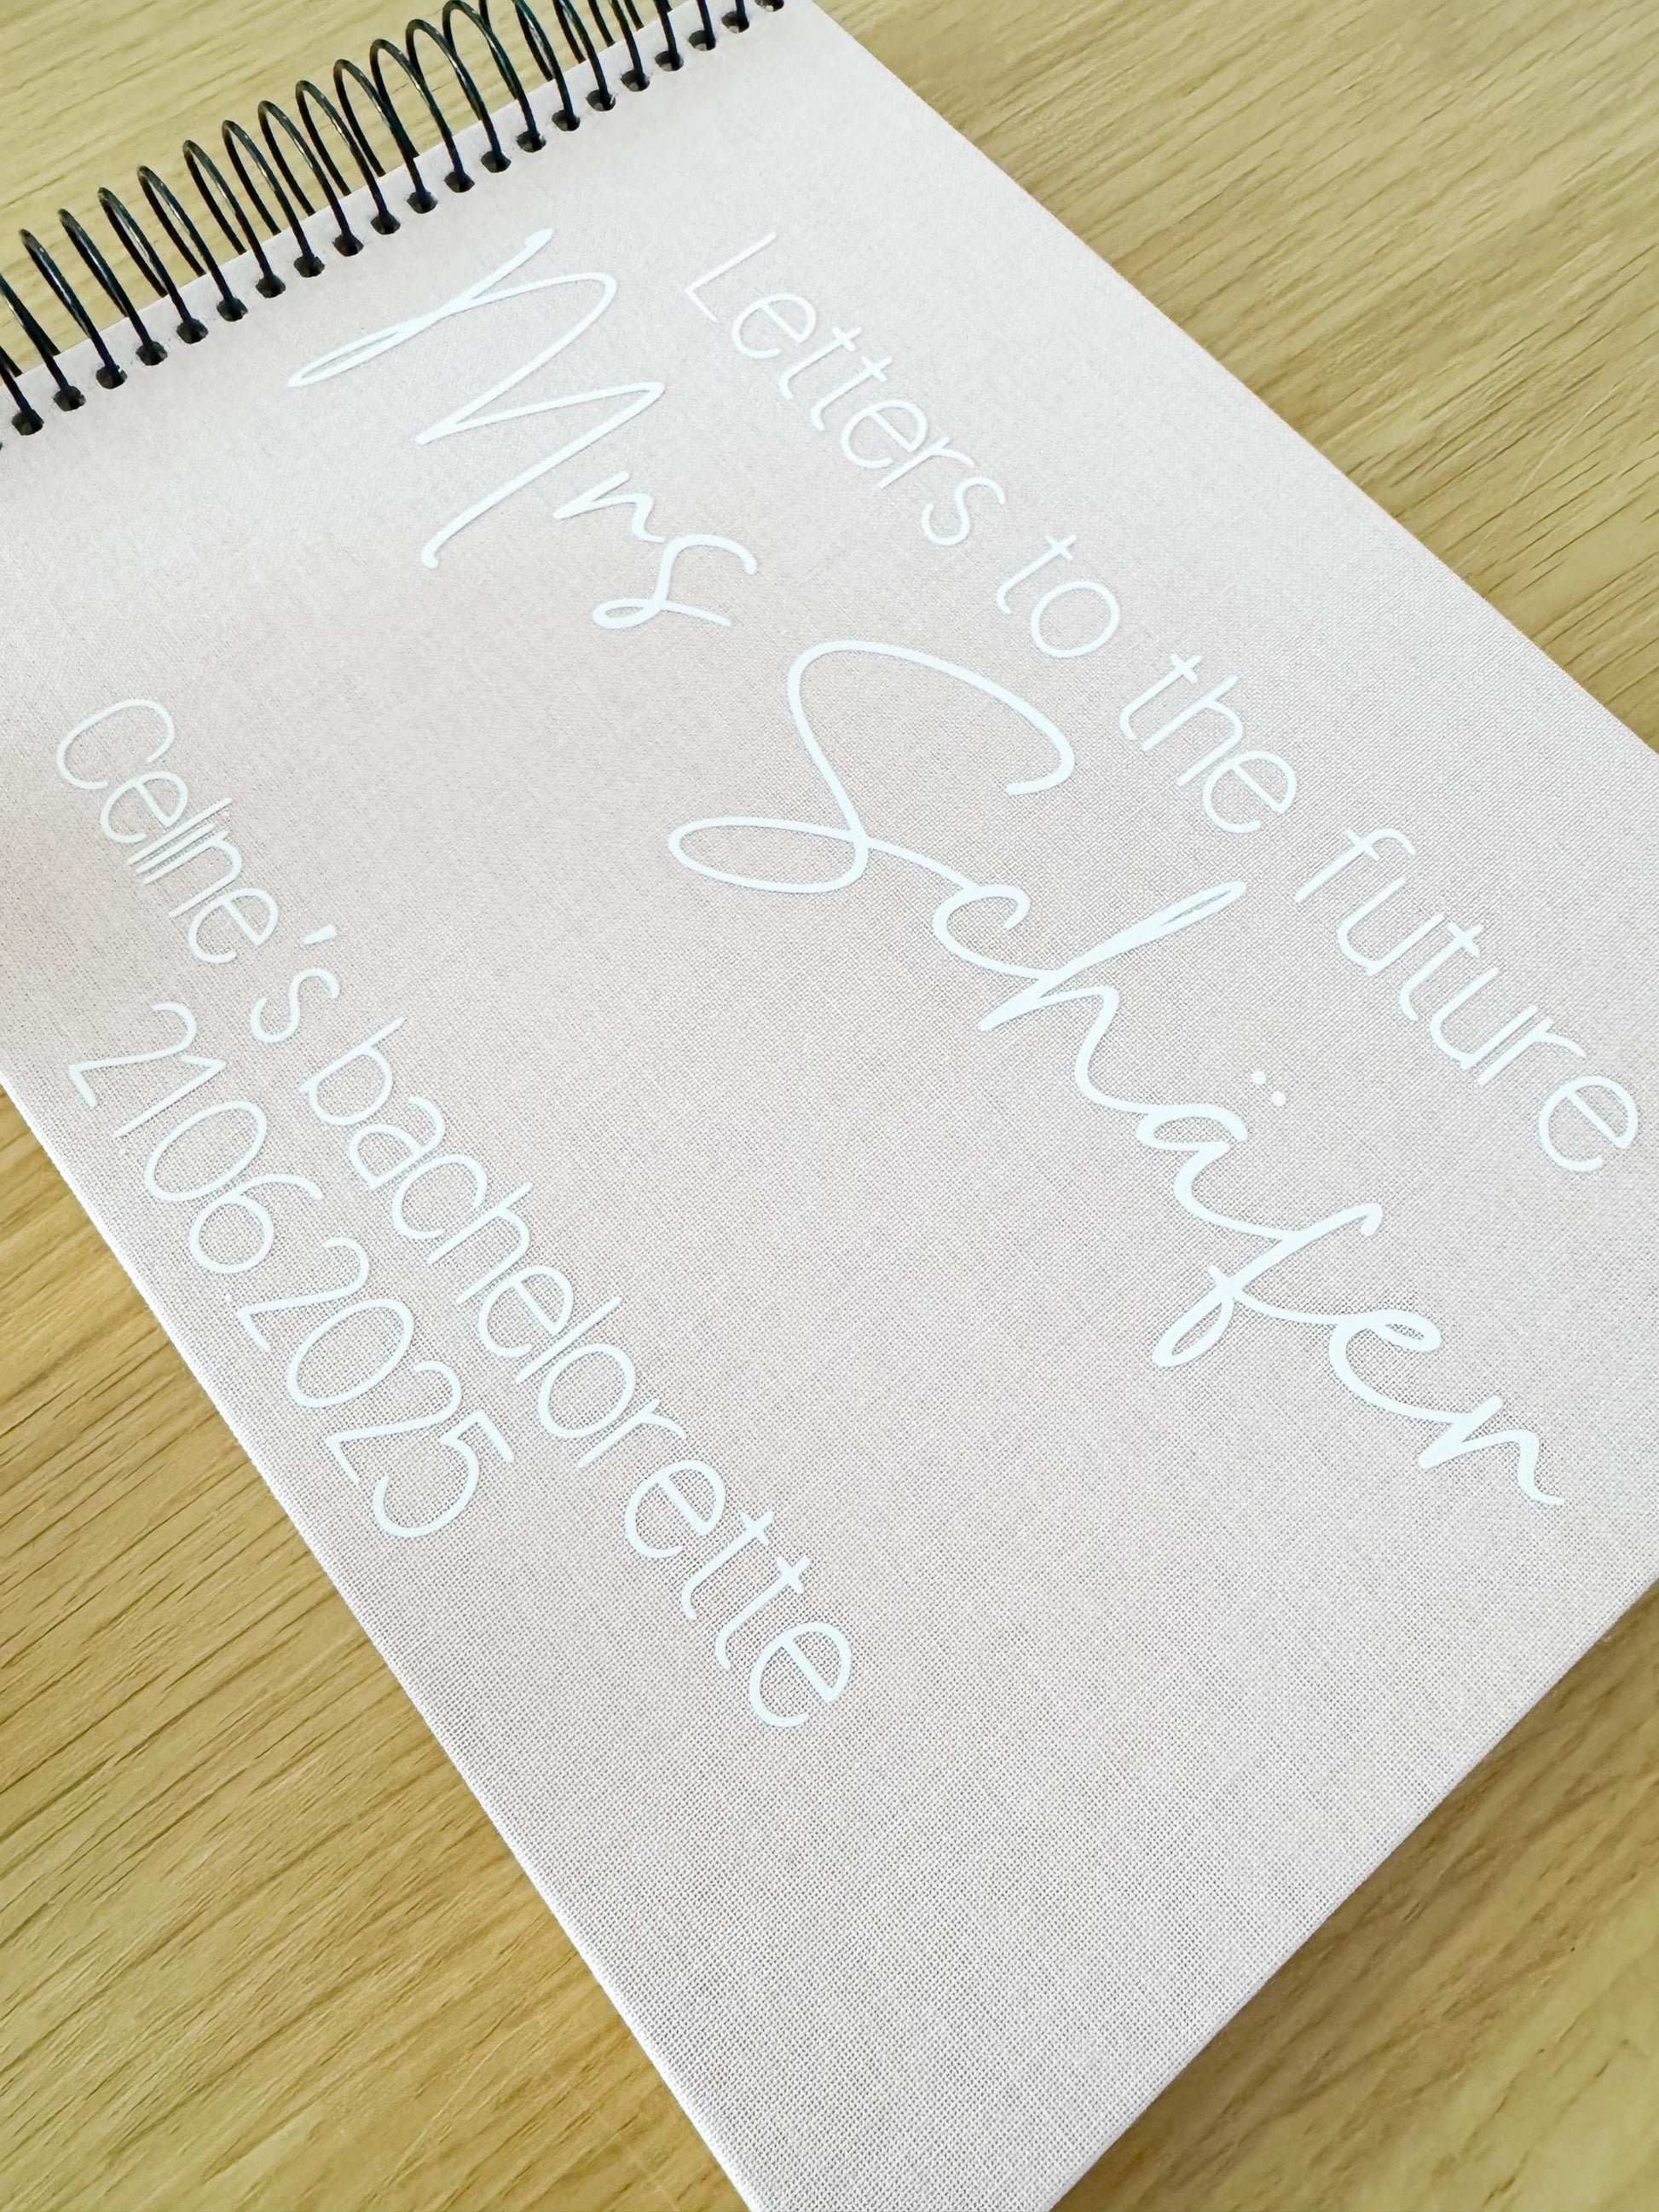 Letters to the future
Mrs Schäfen
Celine's bachelorette
21.06.2025